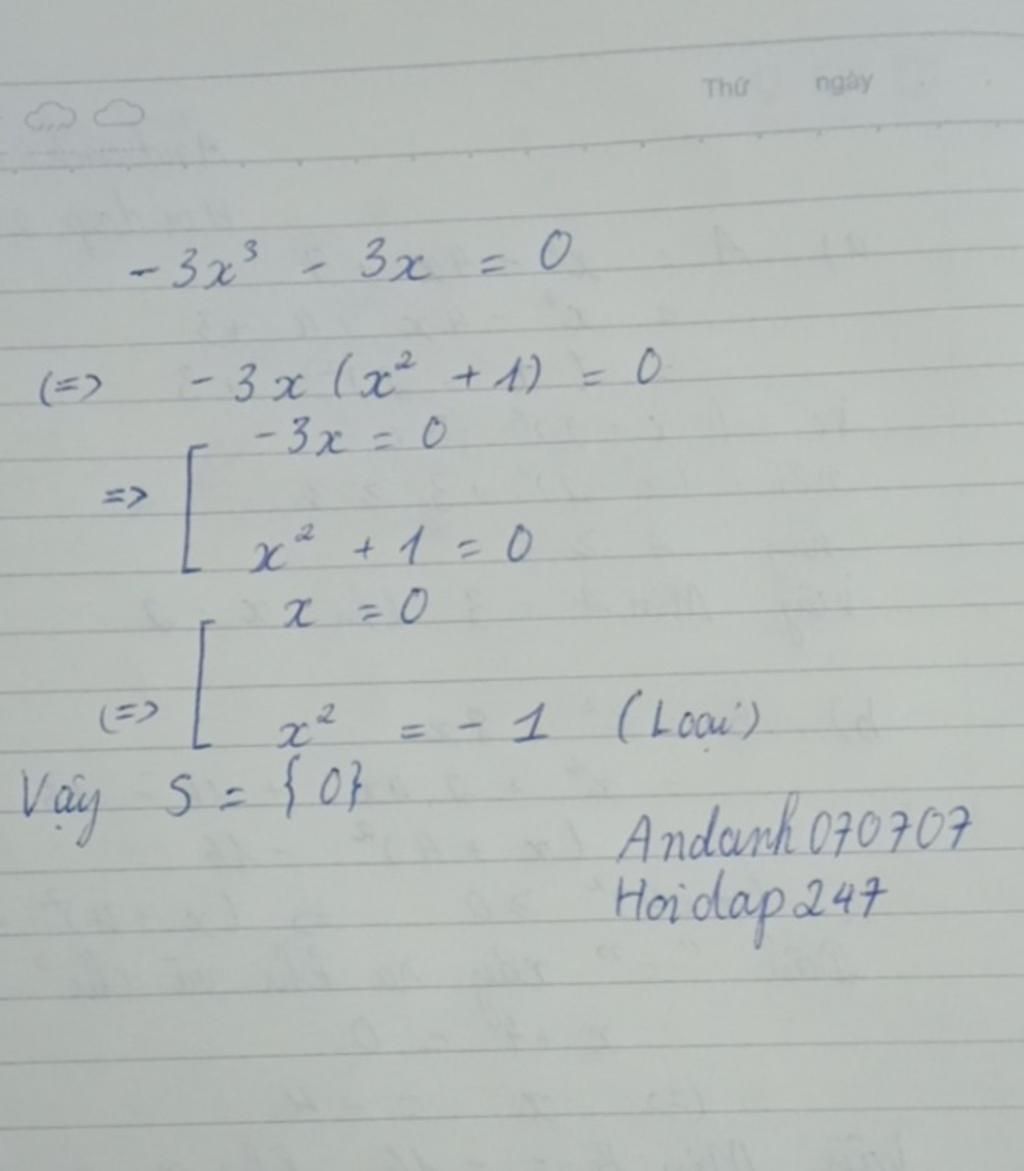 Thứ ngày
-3x³ - 3x = 0
(=> -3x (x² + 1) = 0
=> [ -3x = 0
x² + 1 = 0
(=> [ x = 0
x² = -1 (Loại)
Vậy S = {0}
Andanh070707
Hoidap247